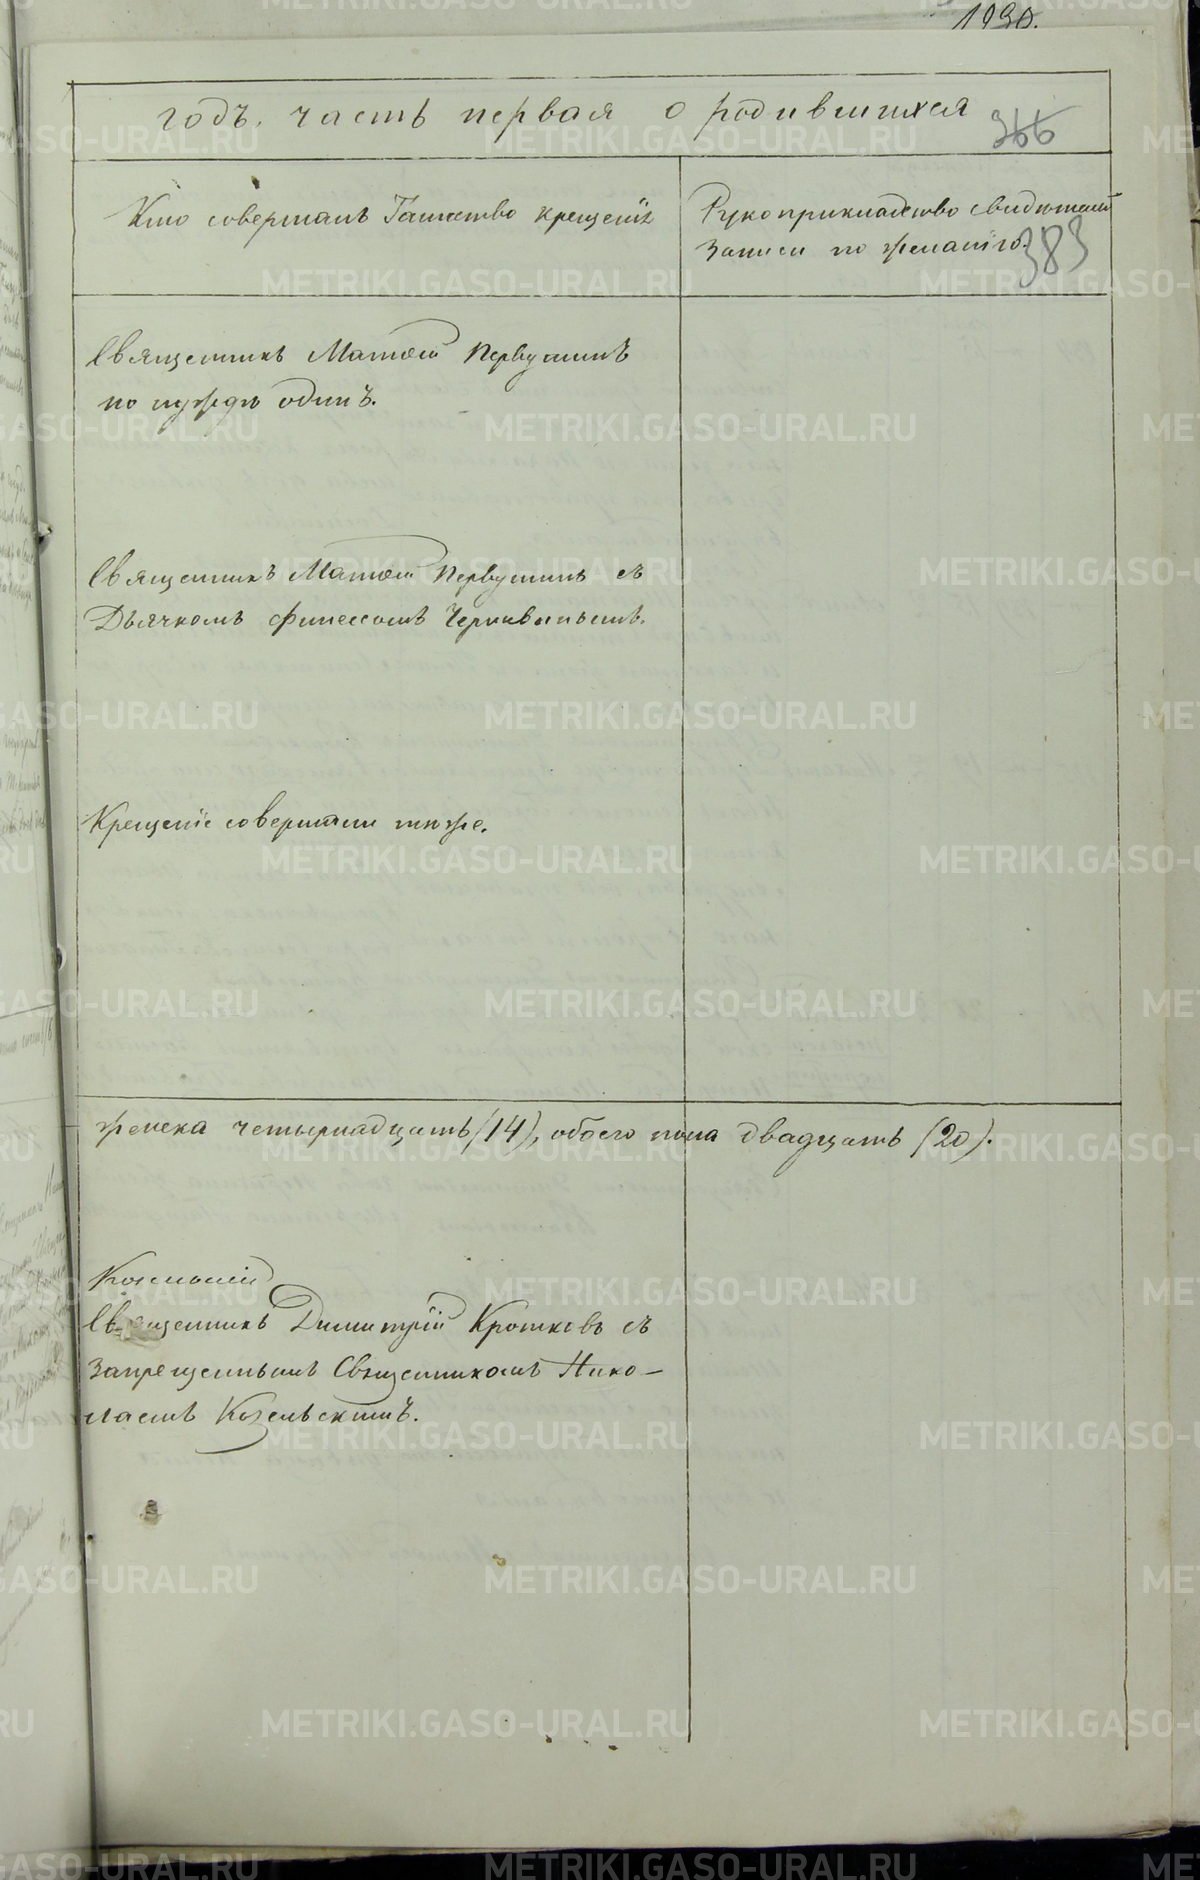 1930.
годъ. часть первая о родившихся
366
Кто совершалъ Таинство крещенія
Рукоприкладство свидѣтелей
записи по желанію.
383
Священникъ Матѳей Первушинъ
по нуждѣ одинъ.
Священникъ Матѳей Первушинъ съ
Дьячкомъ Финессомъ
Крещеніе совершили тѣже.
женска четырнадцать (14), обоего пола двадцать (20).
Священникъ Димитрій Кротковъ съ
запрещеннымъ Священникомъ Нико-
лаемъ Козельскимъ.
METRIKI.GASO-URAL.RU